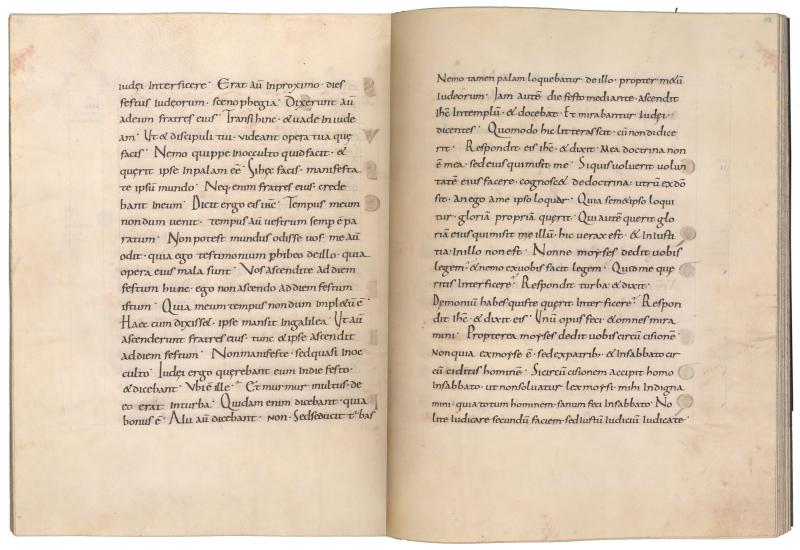 iudęi interficere · Erat aū inproximo · dies
festus iudeorum · scenophegia · Dixerunt aū
adeum fratres eius · Transi hinc · & uade iniude
am · Ut & discipuli tui · uideant opera tua quę
facis · Nemo quippe inocculto quid facit · &
quęrit ipse inpalam eē · Sihęc facis · manifesta
te ipsū mundo · Neq· enim fratres eius · crede
bant ineum · Dicit ergo eis ihc̄ · Tempus meum
nondum uenit · tempus aū uestrum semp ē pa
ratum · Non potest mundus odisse uos · me aū
odit · quia ego testimonium phibeo deillo · quia
opera eius mala sunt · Vos ascendite addiem
festum hunc · ego non ascendo addiem festum
istum · Quia meum tempus nondum impl&ū ē ·
Haec cum dixiss& · ipse mansit ingalilea · Ut aū
ascenderunt fratres eius · tunc & ipse ascendit
addiem festum · Nonmanifeste · sedquasi inoc
culto · Iudęi ergo quęrebant eum indie festo ·
& dicebant · Vbi ē ille · Et murmur multus · de
eo erat inturba · Quidam enim dicebant · quia
bonus ē · Alii aū dicebant · non · Sedseducit turbas
Nemo tamen palam loquebatur deillo · propter m&ū
iudeorum · Iam autē die festo mediante · ascendit
ihc̄ intemplū · & docebat · Et mirabantur iudęi ·
dicentes · Quomodo hic litteras scit · cū non didice
rit · Respondit eis ihc̄ · & dixit · Mea doctrina non
ē mea · sed eius qui misit me · Siquis uoluerit uolun
tatē eius facere · cognosc& dedoctrina · utrū exdō
sit · an ego ame ipso loquar · Quia sem&ipso loqui
tur · gloriā propriā quęrit · Qui autē quęrit glo
riā eius qui misit illū · hic uerax est · & iniusti
tia · inillo non est · Nonne moyses dedit uobis
legem · & nemo exuobis facit legem · Quid me quę
ritis interficere · Respondit turba · & dixit ·
Demoniū habes quis te quęrit interficere · Respon
dit ihc̄ · & dixit eis · Vnū opus feci · & omnes mira
mini · Propterea moyses dedit uobis circūcisionē ·
Non quia exmoyse ē · sed expatrib; · & insabbato cir
cūciditis hominē · Sicircūcisionem accipit homo
insabbato · ut non soluatur lex moysi · mihi indigna
mini · quia totum hominem · sanum feci insabbato · No
lite iudicare secundū faciem · sed iustū iudiciū iudicate ·